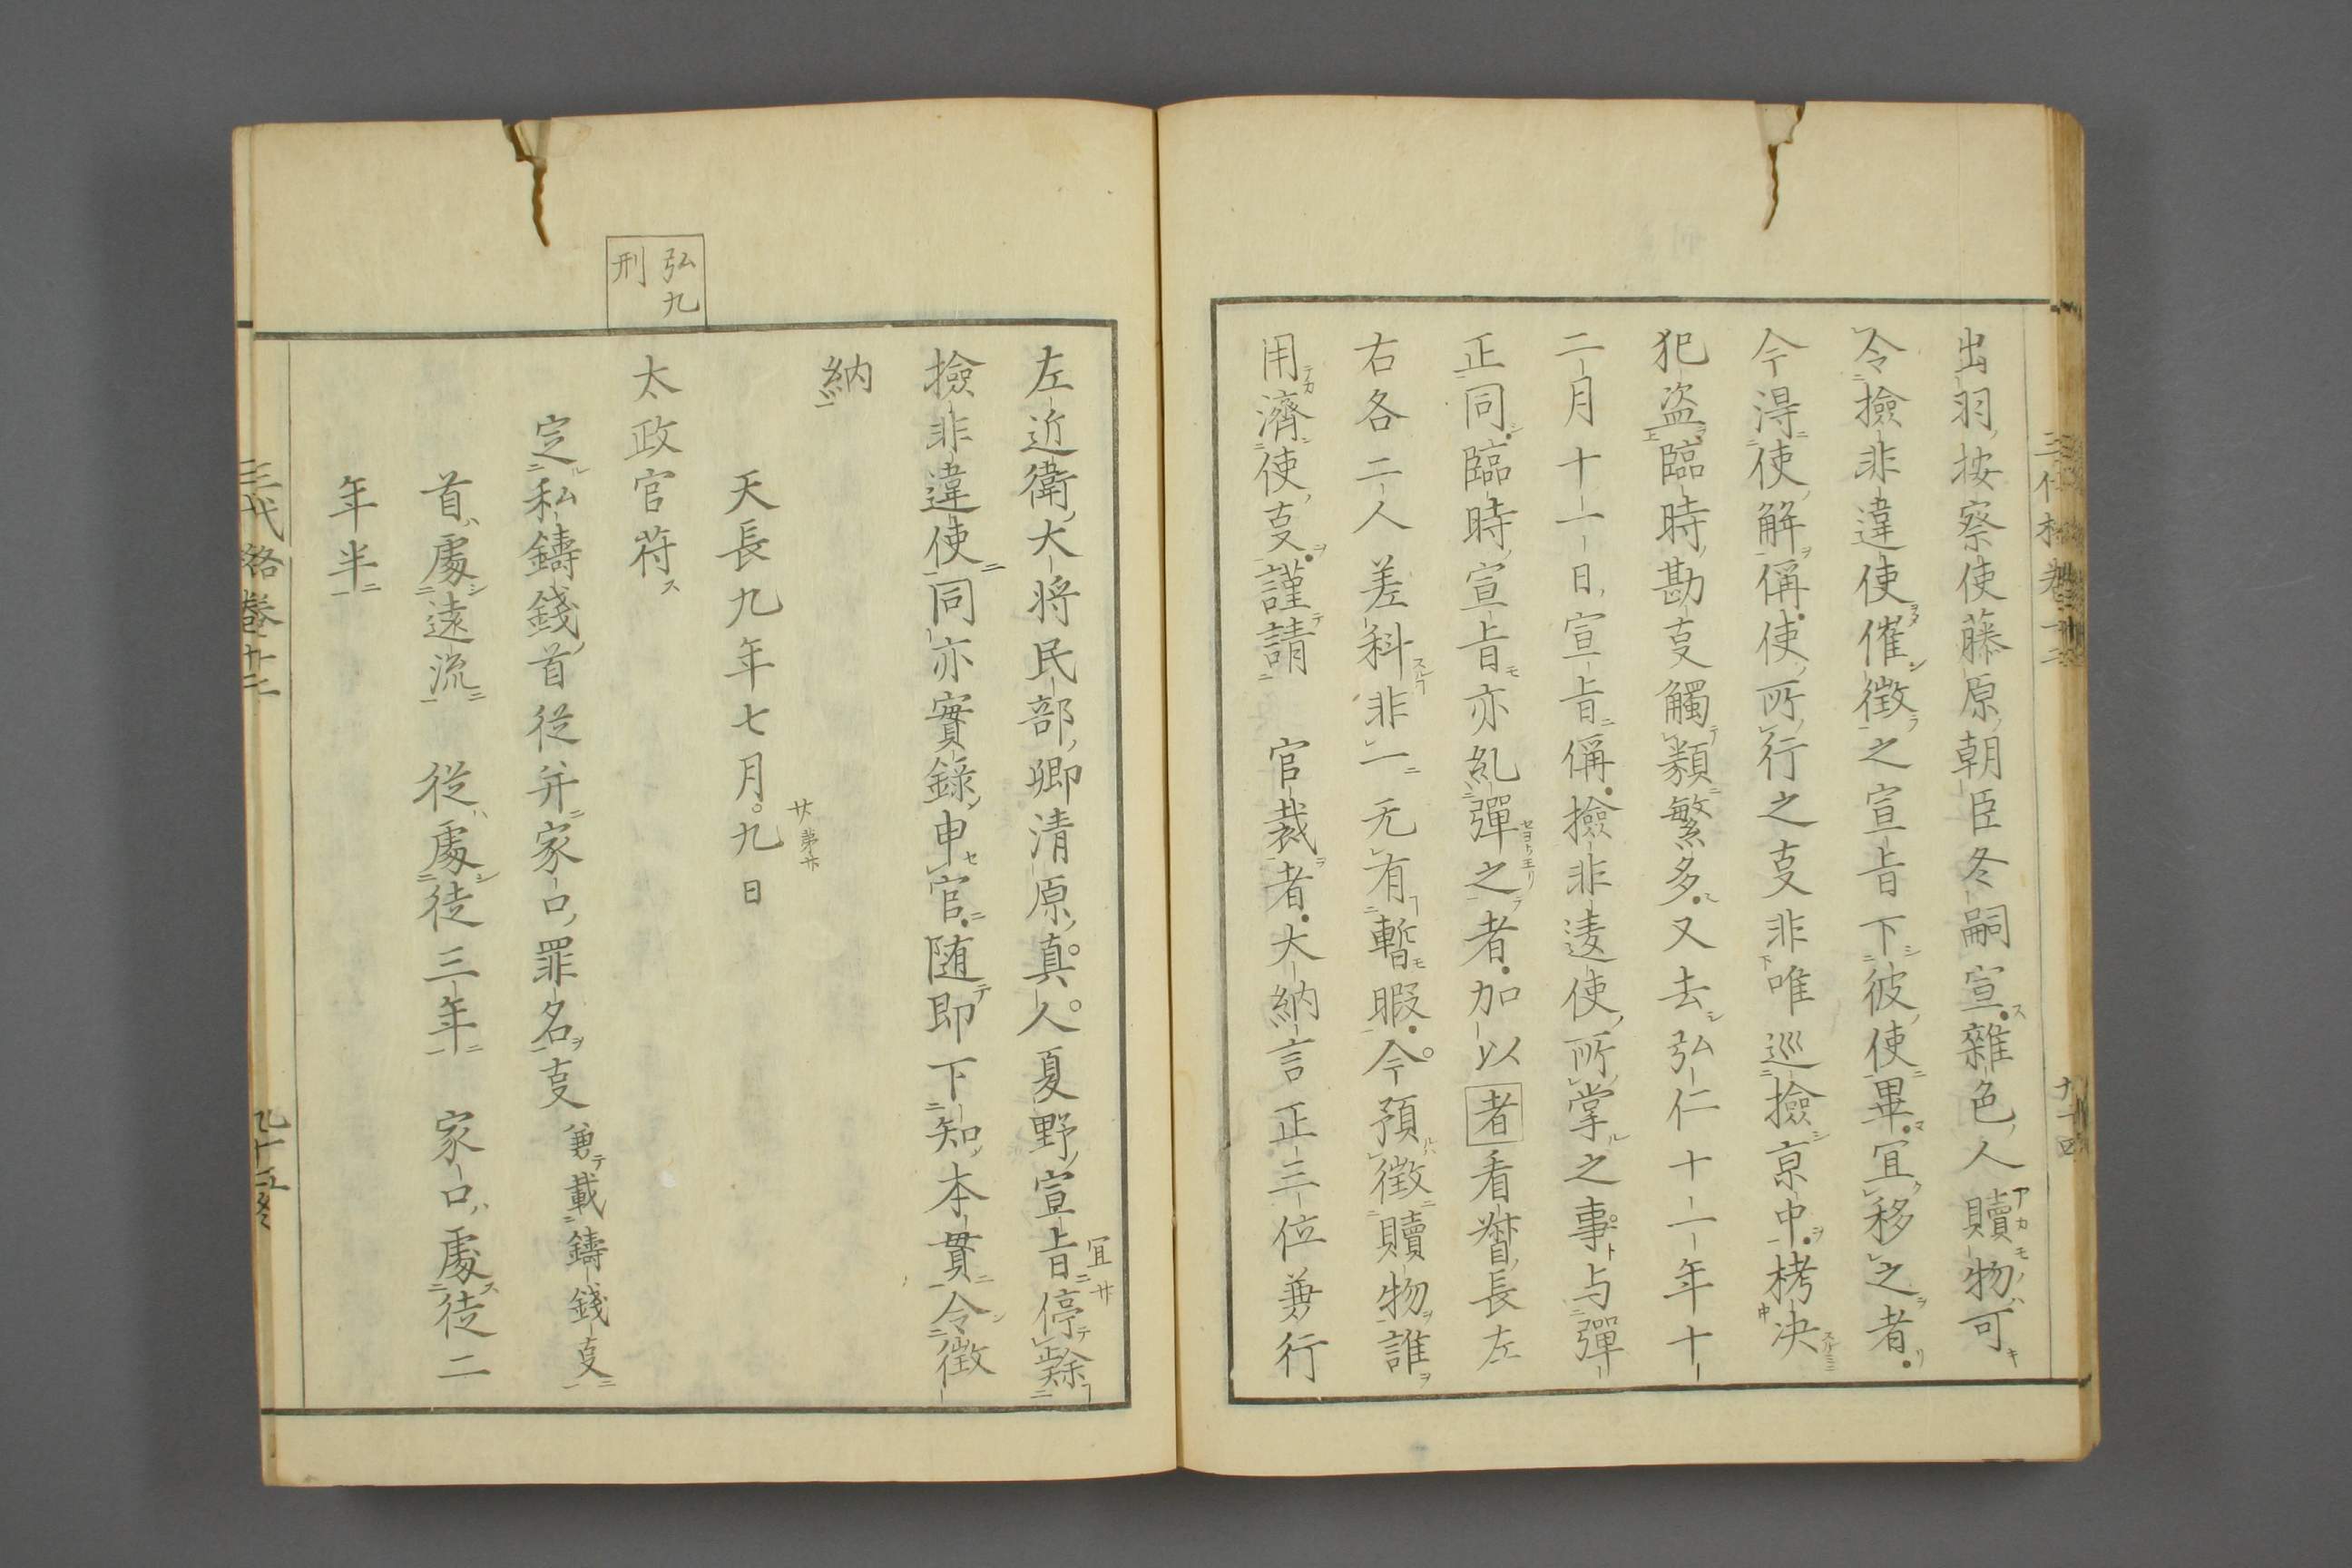 出羽按察使藤原朝臣冬嗣宣雜色人贖物可
令撿非違使催徴之宣旨下彼使畢冝移之者
今淂使解偁使所行之㕝非唯巡撿京中栲决
犯盗臨時勘㕝觸類繁多又去弘仁十一年十
二月十一日宣旨偁撿非違使所掌之事与彈
正同臨時宣旨亦糺彈之者加以者看督長左
右各二人差科非一无有暫暇今預徴贖物誰
用濟使㕝謹請　官裁者大納言正三位兼行
左近衛大将民部卿清原真人夏野宣旨停
撿非違使同亦實錄申官随即下知本貫令徴
納
天長九年七月九日
弘九
刑
太政官苻
定私鑄錢首從并家口罪名㕝兼載鑄錢㕝
首處遠流　從處徒三年　家口處徒二
年半
三代格巻十二